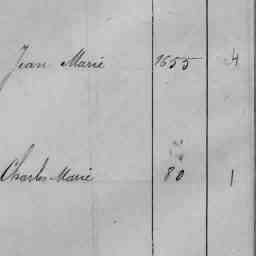 Jean Marie 1655 4
Charles Marie 80 1